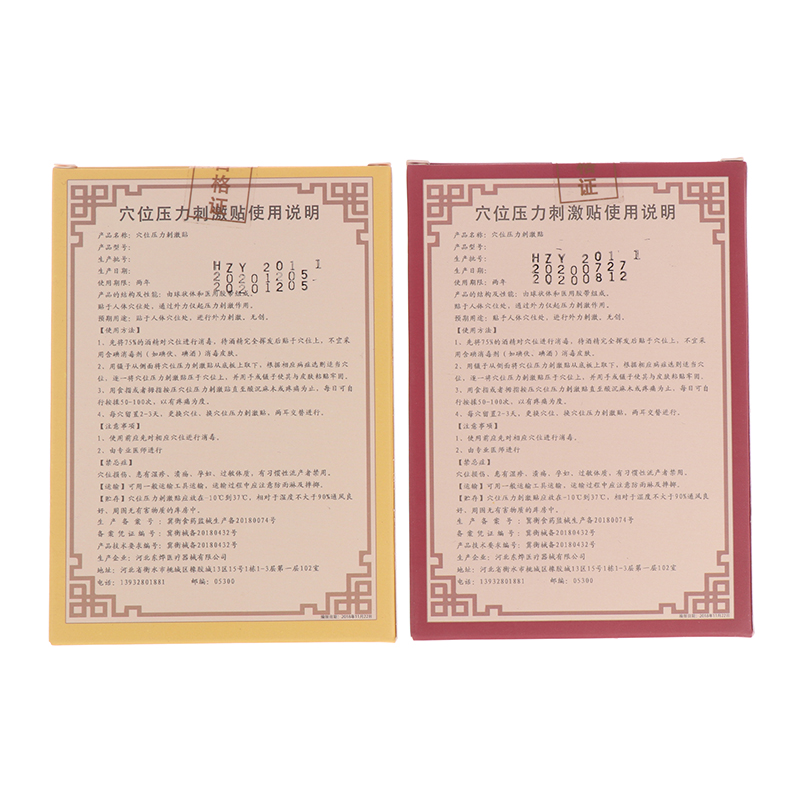 格
证
穴位压力刺激贴使用说明
产品名称: 穴位压力刺激贴
产品型号:
生产批号:
生产日期:
使用期限: 两年
HZY 2011
20201205
20201205
产品的结构及性能: 由球状体和医用胶带组成,
贴于人体穴位处, 通过外力仅起压力刺激作用。
预期用途: 贴于人体穴位处、进行外力刺激。无创。
【使用方法】
1、先将75%的酒精对穴位进行消毒, 待酒精完全挥发后贴于穴位上, 不宜采
用含碘消毒剂（如碘伏、碘酒）消毒皮肤。
2、用镊子从侧面将穴位压力刺激贴从底板上取下, 根据相应病症选则适当穴
位, 逐一将穴位压力刺激贴压于穴位上, 并用手或镊子使其与皮肤粘贴牢固。
3、用食指或者拇指按压穴位压力刺激贴直至酸沉麻木或疼痛为止, 每日可自
行按揉50-100次, 以有疼痛为度。
4、每穴留置2-3天, 更换穴位、换穴位压力刺激贴, 两耳交替进行。
【注意事项】
1、使用前应先对相应穴位进行消毒。
2、由专业医师进行
【禁忌症】
穴位损伤、患有湿疹、溃疡、孕妇、过敏体质, 有习惯性流产者禁用。
【运输】可用一般运输工具运输, 运输过程中应注意防雨淋及摔掷。
【贮存】穴位压力刺激贴应放在-10℃到37℃, 相对于湿度不大于90%通风良
好、周围无有害物质的库房中。
生 产 备 案 号 : 冀衡食药监械生产备20180074号
备 案 凭 证 编 号 : 冀衡械备20180432号
产品技术要求编号: 冀衡械备20180432号
生产企业: 河北东烨医疗器械有限公司
地址: 河北省衡水市桃城区橡胶城13区15号1栋1-3层第一层102室
电话: 13932801881 邮编: 05300
证
穴位压力刺激贴使用说明
产品名称: 穴位压力刺激贴
产品型号:
生产批号:
生产日期:
使用期限: 两年
HZY 2011
20200727
20200812
产品的结构及性能: 由球状体和医用胶带组成,
贴于人体穴位处, 通过外力仅起压力刺激作用。
预期用途: 贴于人体穴位处、进行外力刺激。无创。
【使用方法】
1、先将75%的酒精对穴位进行消毒, 待酒精完全挥发后贴于穴位上, 不宜采
用含碘消毒剂（如碘伏、碘酒）消毒皮肤。
2、用镊子从侧面将穴位压力刺激贴从底板上取下, 根据相应病症选则适当穴
位, 逐一将穴位压力刺激贴压于穴位上, 并用手或镊子使其与皮肤粘贴牢固。
3、用食指或者拇指按压穴位压力刺激贴直至酸沉麻木或疼痛为止, 每日可自
行按揉50-100次, 以有疼痛为度。
4、每穴留置2-3天, 更换穴位、换穴位压力刺激贴, 两耳交替进行。
【注意事项】
1、使用前应先对相应穴位进行消毒。
2、由专业医师进行
【禁忌症】
穴位损伤、患有湿疹、溃疡、孕妇、过敏体质, 有习惯性流产者禁用。
【运输】可用一般运输工具运输, 运输过程中应注意防雨淋及摔掷。
【贮存】穴位压力刺激贴应放在-10℃到37℃, 相对于湿度不大于90%通风良
好、周围无有害物质的库房中。
生 产 备 案 号 : 冀衡食药监械生产备20180074号
备 案 凭 证 编 号 : 冀衡械备20180432号
产品技术要求编号: 冀衡械备20180432号
生产企业: 河北东烨医疗器械有限公司
地址: 河北省衡水市桃城区橡胶城13区15号1栋1-3层第一层102室
电话: 13932801881 邮编: 05300